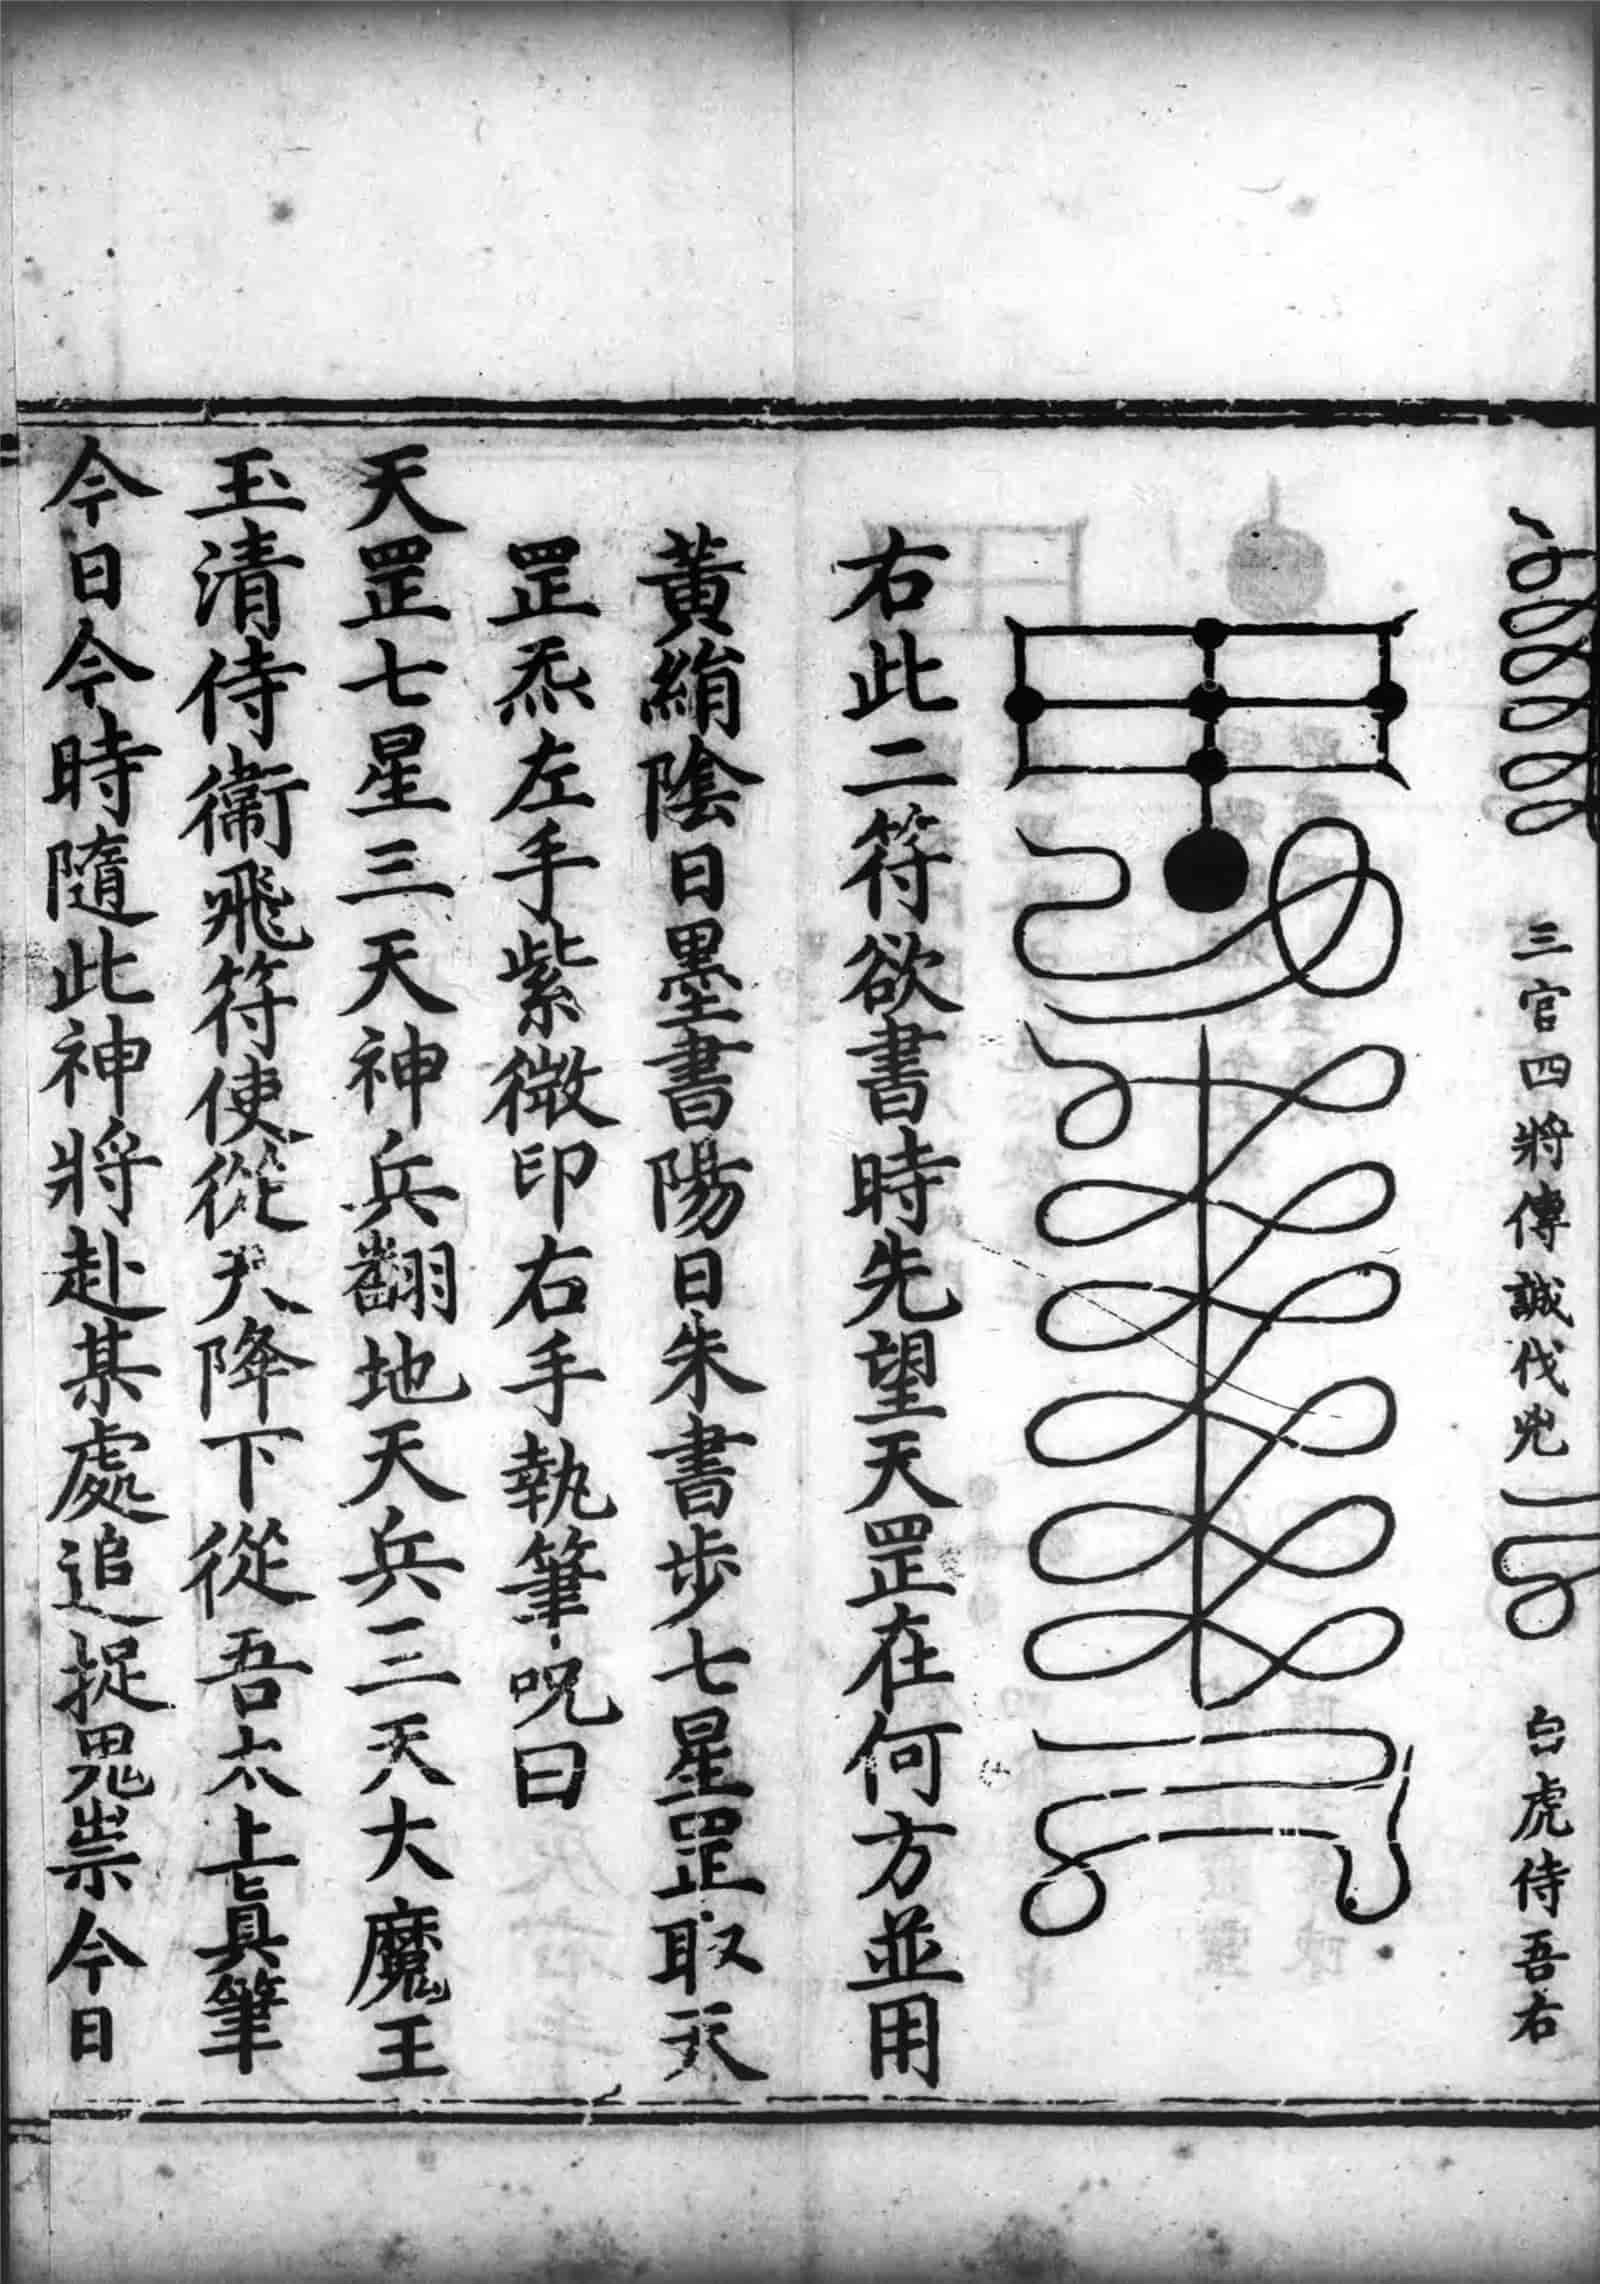 三官四將傳誠伐兇
白虎侍吾右
右此二符欲書時先望天罡在何方並用
黃絹陰日墨書陽日朱書步七星罡取天
罡炁左手紫微印右手執筆咒曰
天罡七星三天神兵翻地天兵三天大魔王
玉清侍衛飛符使從天降下從吾太上真筆
今日今時隨此神將赴某處追捉鬼祟今日